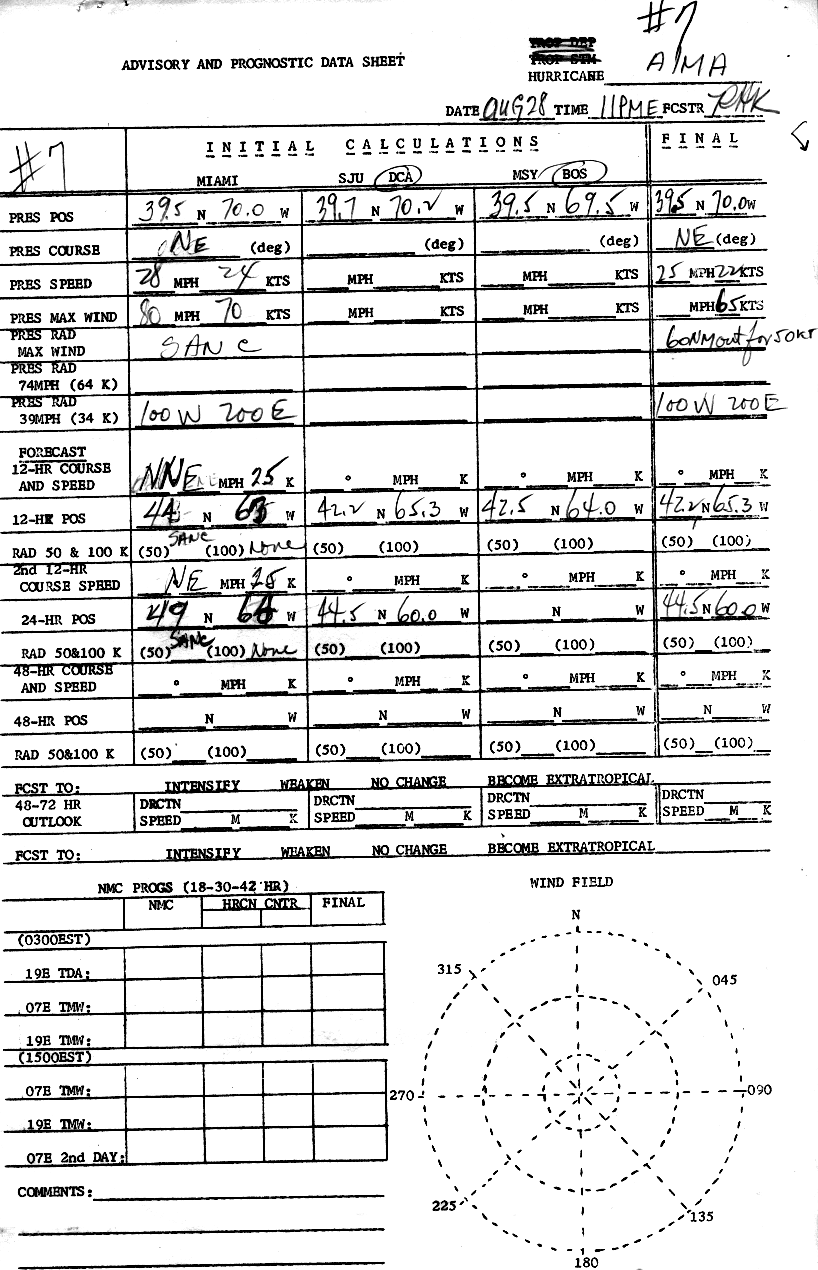 #7
TROP DEP
TROP STM
ADVISORY AND PROGNOSTIC DATA SHEET
HURRICANE ALMA
DATE AUG 28 TIME 11PME FCSTR RHK
#7
INITIAL CALCULATIONS FINAL
MIAMI SJU DCA MSY BOS
PRES POS 39.5 N 70.0 W 39.7 N 70.2 W 39.5 N 69.5 W 39.5 N 70.0 W
PRES COURSE NE (deg) (deg) (deg) NE (deg)
PRES SPEED 28 MPH 24 KTS MPH KTS MPH KTS 25 MPH 22 KTS
PRES MAX WIND 80 MPH 70 KTS MPH KTS MPH KTS MPH 65 KTS
PRES RAD
MAX WIND SANC 60NM out for 50KT
PRES RAD
74MPH (64 K)
PRES RAD
39MPH (34 K) 100W 200E 100W 200E
FORECAST
12-HR COURSE
AND SPEED NNE MPH 25 K ° MPH K ° MPH K ° MPH K
12-HR POS 44 N W 42.2 N 65.3 W 42.5 N 64.0 W 42.2 N 65.3 W
RAD 50 & 100 K (50) SANC (100) None (50) (100) (50) (100) (50) (100)
2nd 12-HR
COURSE SPEED NE MPH 25 K ° MPH K ° MPH K ° MPH K
24-HR POS 49 N W 44.5 N 60.0 W N W 44.5 N 60.0 W
RAD 50&100 K (50) SANC (100) None (50) (100) (50) (100) (50) (100)
48-HR COURSE
AND SPEED ° MPH K ° MPH K ° MPH K ° MPH K
48-HR POS N W N W N W N W
RAD 50&100 K (50) (100) (50) (100) (50) (100) (50) (100)
FCST TO: INTENSIFY WEAKEN NO CHANGE BECOME EXTRATROPICAL
48-72 HR DRCTN DRCTN DRCTN DRCTN
OUTLOOK SPEED M K SPEED M K SPEED M K SPEED M K
FCST TO: INTENSIFY WEAKEN NO CHANGE BECOME EXTRATROPICAL
NMC PROGS (18-30-42 HR)
NMC HRCN CNTR FINAL
(0300EST)
19E TDA:
07E TMW:
19E TMW:
(1500EST)
07E TMW:
19E TMW:
07E 2nd DAY:
COMMENTS:
WIND FIELD
N
315 045
270 090
225 135
180